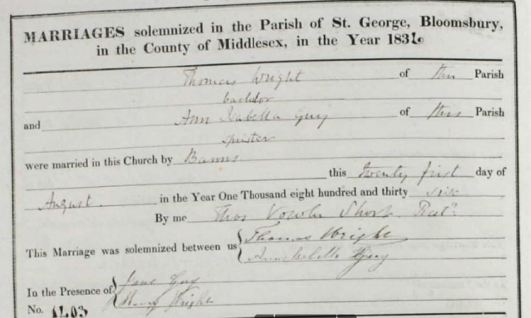 MARRIAGES solemnized in the Parish of St. George, Bloomsbury,
in the County of Middlesex, in the Year 1836
Thomas Wright of this Parish
bachelor
and Ann Isabella Guy of this Parish
spinster
were married in this Church by Banns
this Twenty first day of
August in the Year One Thousand eight hundred and thirty six
By me Thos Vowler Short
This Marriage was solemnized between us Thomas Wright
Guy
In the Presence of Jane Guy
Wright
No. 1203